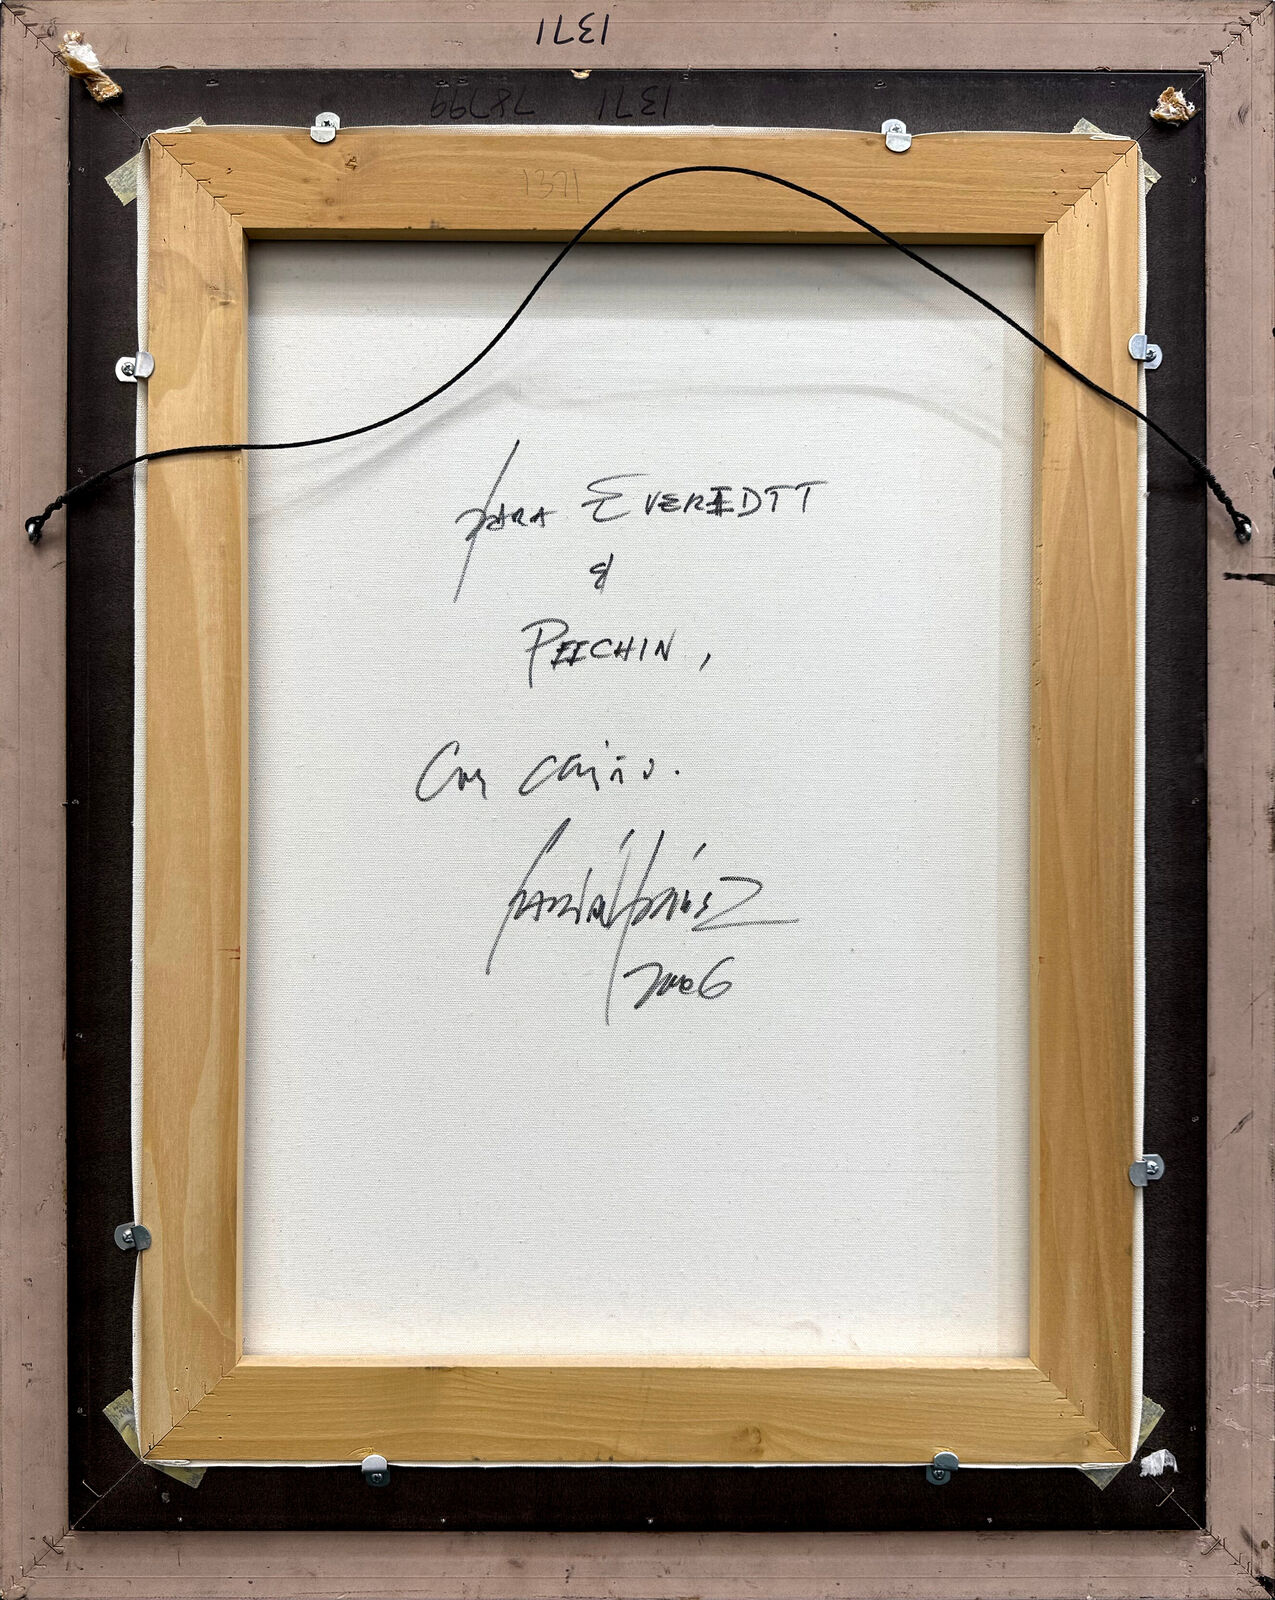 1371
78799 1371
1371
Para EVEREDTT
&
PEECHIN,
Con cariño.
2006